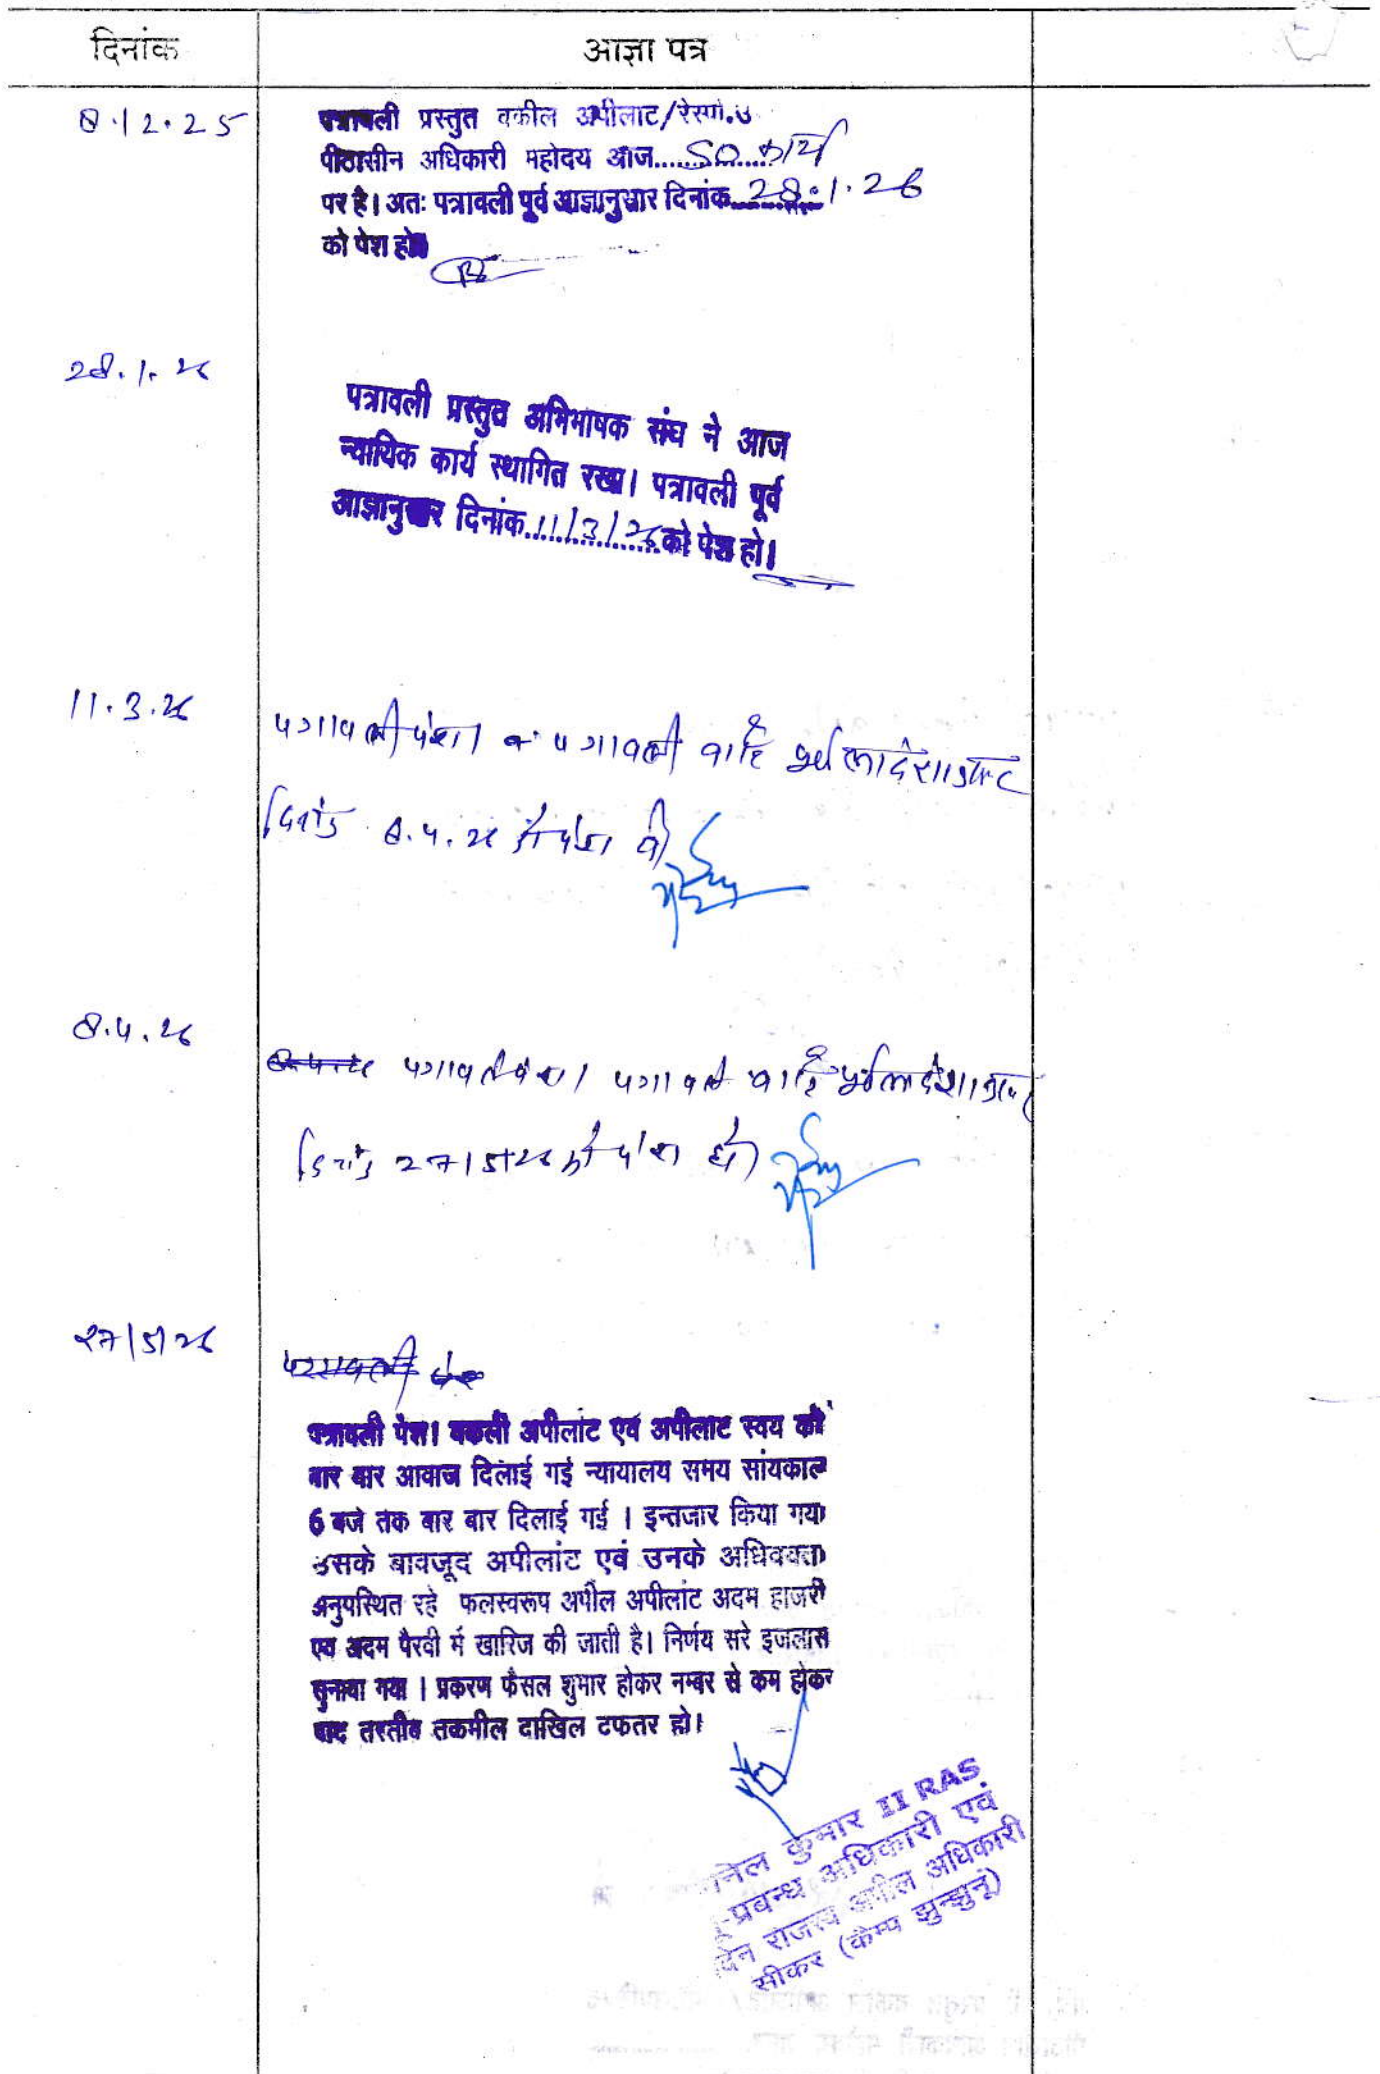 दिनांक
आज्ञा पत्र
8.12.25
पत्रावली प्रस्तुत वकील अपीलाट/रेस्पो.उ.
पीठासीन अधिकारी महोदय आज.....SO कार्य
पर है। अतः पत्रावली पूर्व आज्ञानुसार दिनांक...28.1.26
को पेश हो।
28.1.26
पत्रावली प्रस्तुत अभिभाषक संघ ने आज
न्यायिक कार्य स्थागित रखा। पत्रावली पूर्व
आज्ञानुसार दिनांक...11/3/26...को पेश हो।
11.3.26
पत्रावली पेश। पत्रावली वास्ते पूर्व आदेशानुसार
दिनांक 8.4.26 को पेश हो
8.4.26
पत्रावली पेश। पत्रावली वास्ते पूर्व आदेशानुसार
दिनांक 27/5/26 को पेश हो
27/5/26
पत्रावली पेश
पत्रावली पेश। वकली अपीलांट एवं अपीलाट स्वय को
बार बार आवाज दिलाई गई न्यायालय समय सांयकाल
6 बजे तक बार बार दिलाई गई । इन्तजार किया गया
उसके बावजूद अपीलांट एवं उनके अधिवक्ता
अनुपस्थित रहे फलस्वरूप अपील अपीलांट अदम हाजरी
एव अदम पैरवी में खारिज की जाती है। निर्णय सरे इजलास
सुनाया गया । प्रकरण फैसल शुमार होकर नम्बर से कम होकर
बाद तरतीब तकमील दाखिल टफतर हो।
कुमार II RAS
-प्रबन्ध अधिकारी एवं
राजस्व अपील अधिकारी
सीकर (कैम्प झुन्झुनू)